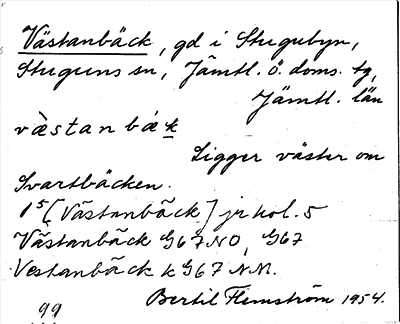 Västanbäck, gd i Stugubyn,
Stuguns sn, Jämtl. ö. doms. tg,
Jämtl. län
vàstan bá k
Ligger väster om
Svartbäcken.
1⁵ [Västanbäck] jr kol. 5
Västanbäck G67 NO, G67
Vestanbäck k G67 N.M.
Bertil Flemström 1954.
99